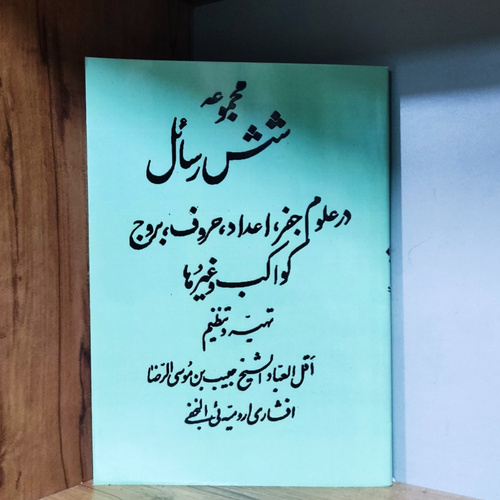 مجموعه
شش رسائل
در علوم جفر، اعداد، حروف، بروج
کواکب وغیرها
تهیه و تنظیم
اقل العباد الشیخ حبیب بن موسی الرضا
افشاری ارومیه ئی النجفی